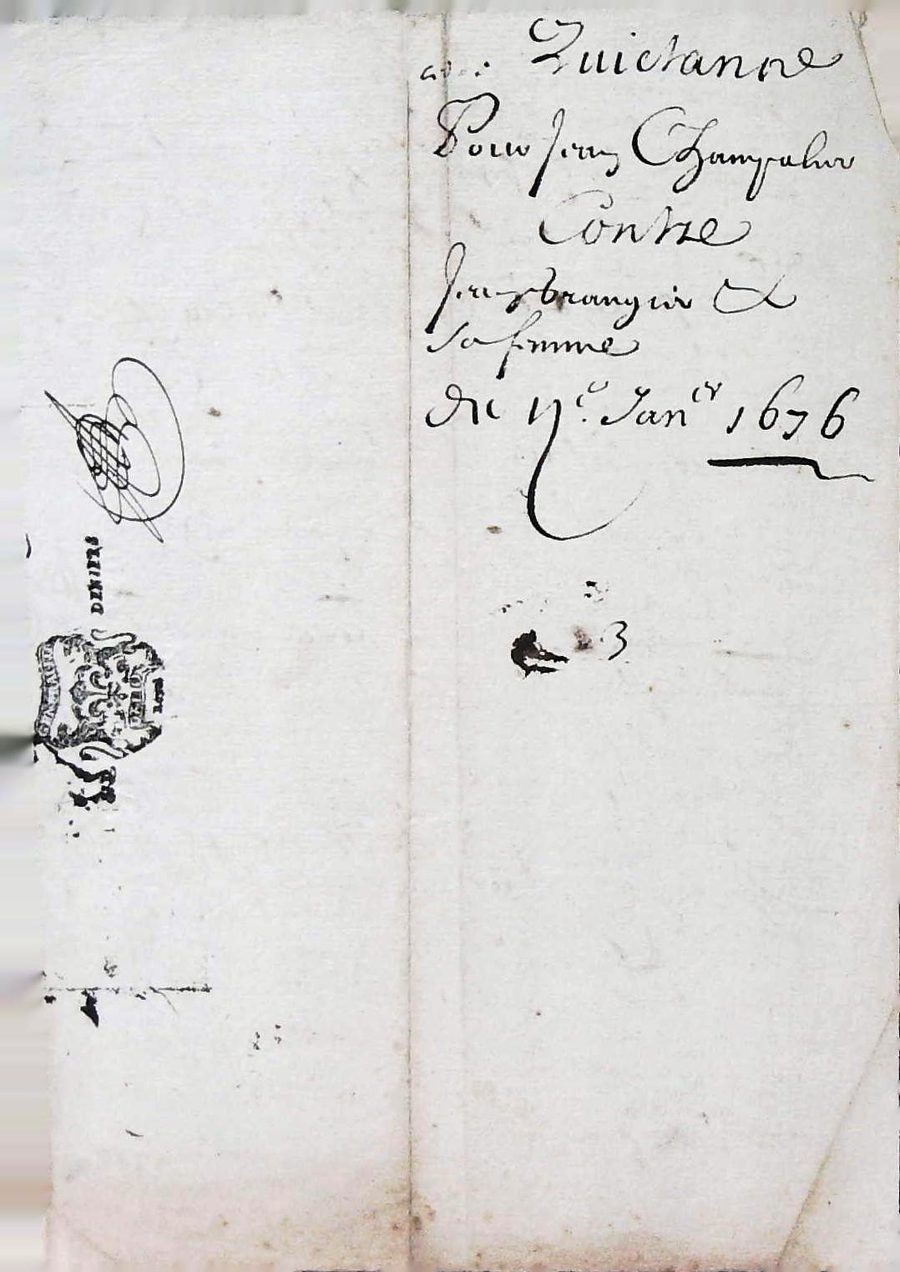 Quictanne
Pour Jean Champalier
Contre
Jean brangier &
sa femme
du 11e. Janer 1676
3
DENIERS